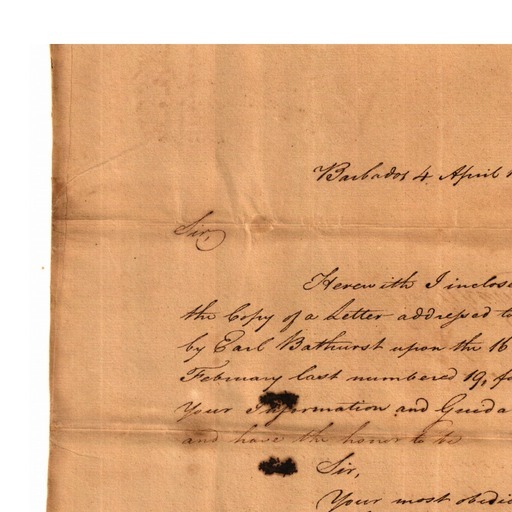 Barbados 4 April
Sir,
Herewith I inclose
the Copy of a Letter addressed to
by Earl Bathurst upon the 16
February last numbered 19, fo
Your Information and Guida
and have the honor to be
Sir,
Your most obedie